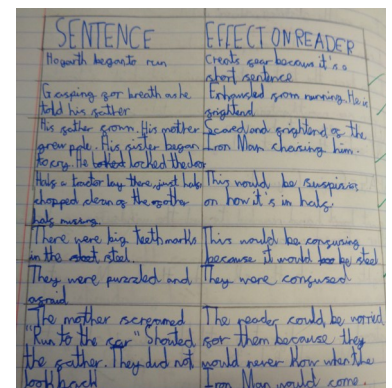 SENTENCE EFFECT ON READER
Hogarth began to run
Creats gear becaus it's a
short sentence
Gasping gor breath as he
told his gather
Enhausted grom running. He is
grightend
His gather grown. His mother
grew pale. His sister began
to cry. He locked the door
Scared and grightend og the
Iron Man chasing him.
Halg a tracter lay there, just halg
chopped clean og the other
halg missing.
This would be suspisios
on how it's in halg.
There were big teeth marks
in the steel.
This would be consusing
because it would be steel
They were puzzled and
agraid
They were consused
The mother screamed
"Run to the car" Shouted
the gather. They did not
look back
The reader could be worried
gor them because they
would never know when the
Iron Man would come.